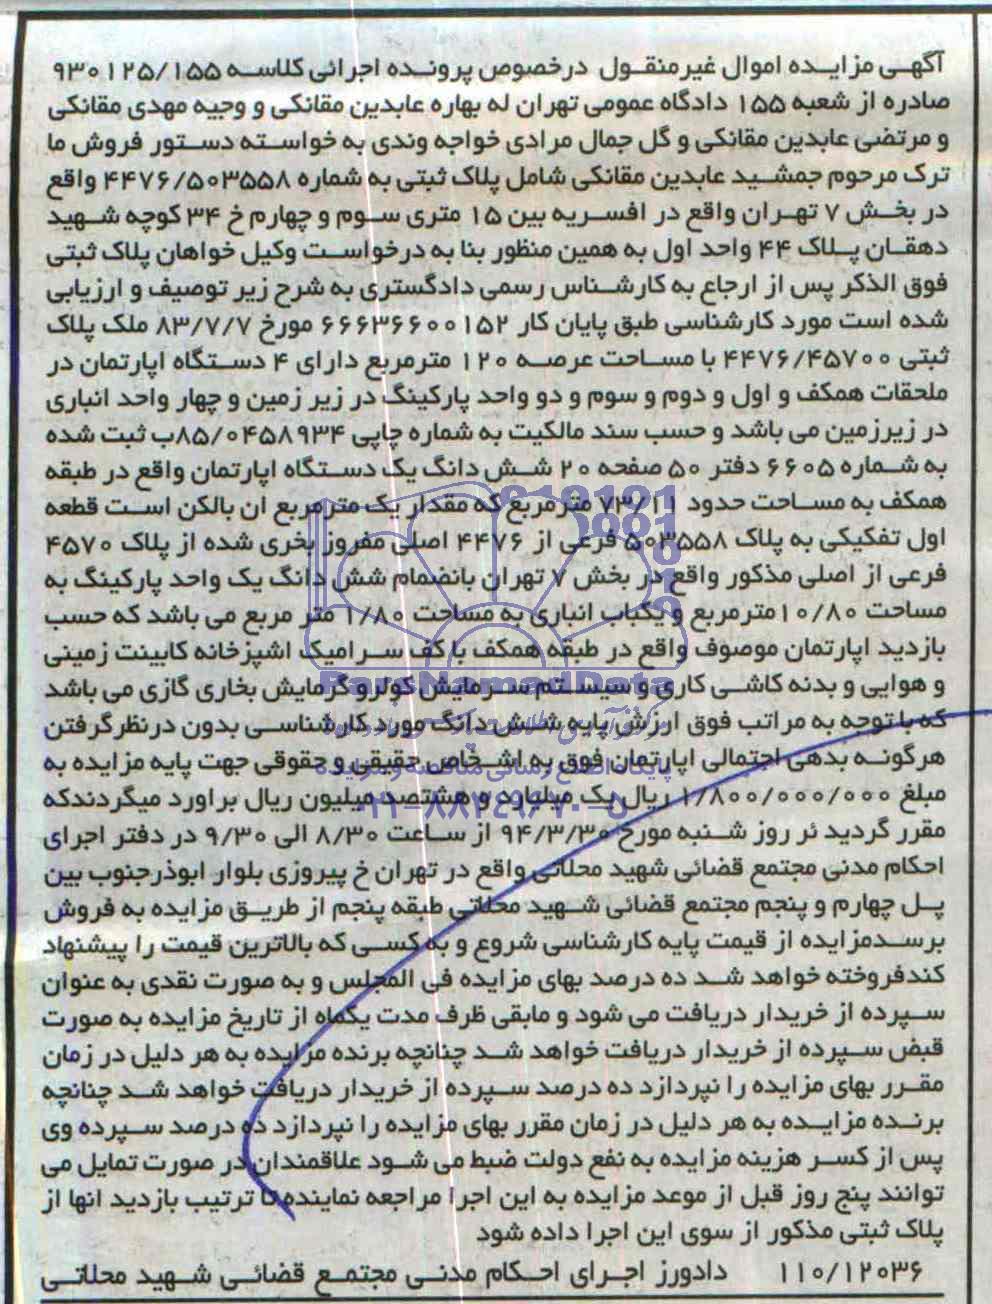 آگهی مزایده اموال غیرمنقول درخصوص پرونده اجرائی کلاسه ۹۳۰۱۲۵/۱۵۵
صادره از شعبه ۱۵۵ دادگاه عمومی تهران له بهاره عابدین مقانکی و وجیه مهدی مقانکی
و مرتضی عابدین مقانکی و گل جمال مرادی خواجه وندی به خواسته دستور فروش ما
ترک مرحوم جمشید عابدین مقانکی شامل پلاک ثبتی به شماره ۴۴۷۶/۵۰۳۵۵۸ واقع
در بخش ۷ تهران واقع در افسریه بین ۱۵ متری سوم و چهارم خ ۳۴ کوچه شهید
دهقان پلاک ۴۴ واحد اول به همین منظور بنا به درخواست وکیل خواهان پلاک ثبتی
فوق الذکر پس از ارجاع به کارشناس رسمی دادگستری به شرح زیر توصیف و ارزیابی
شده است مورد کارشناسی طبق پایان کار ۶۶۶۳۶۶۰۰۱۵۲ مورخ ۸۳/۷/۷ ملک پلاک
ثبتی ۴۴۷۶/۴۵۷۰۰ با مساحت عرصه ۱۲۰ مترمربع دارای ۴ دستگاه اپارتمان در
ملحقات همکف و اول و دوم و سوم و دو واحد پارکینگ در زیر زمین و چهار واحد انباری
در زیرزمین می باشد و حسب سند مالکیت به شماره چاپی ۸۵/۰۴۵۸۹۳۴ب ثبت شده
به شماره ۶۶۰۵ دفتر ۵۰ صفحه ۲۰ شش دانگ یک دستگاه اپارتمان واقع در طبقه
همکف به مساحت حدود ۷۳/۱۱ مترمربع که مقدار یک مترمربع ان بالکن است قطعه
اول تفکیکی به پلاک ۵۰۳۵۵۸ فرعی از ۴۴۷۶ اصلی مفروز بخری شده از پلاک ۴۵۷۰
فرعی از اصلی مذکور واقع در بخش ۷ تهران بانضمام شش دانگ یک واحد پارکینگ به
مساحت ۱۰/۸۰مترمربع و یکباب انباری به مساحت ۱/۸۰ متر مربع می باشد که حسب
بازدید اپارتمان موصوف واقع در طبقه همکف با کف سرامیک اشپزخانه کابینت زمینی
و هوایی و بدنه کاشی کاری و سیستم سرمایش کولر و گرمایش بخاری گازی می باشد
که با توجه به مراتب فوق ارزش پایه شش دانگ مورد کارشناسی بدون درنظرگرفتن
هرگونه بدهی احتمالی اپارتمان فوق به اشخاص حقیقی و حقوقی جهت پایه مزایده به
مبلغ ۱/۸۰۰/۰۰۰/۰۰۰ ریال یک میلیارد و هشتصد میلیون ریال براورد میگردندکه
مقرر گردید ئر روز شنبه مورخ ۹۴/۳/۳۰ از ساعت ۸/۳۰ الی ۹/۳۰ در دفتر اجرای
احکام مدنی مجتمع قضائی شهید محلاتی واقع در تهران خ پیروزی بلوار ابوذرجنوب بین
پل چهارم و پنجم مجتمع قضائی شهید محلاتی طبقه پنجم از طریق مزایده به فروش
برسدمزایده از قیمت پایه کارشناسی شروع و به کسی که بالاترین قیمت را پیشنهاد
کندفروخته خواهد شد ده درصد بهای مزایده فی المجلس و به صورت نقدی به عنوان
سپرده از خریدار دریافت می شود و مابقی ظرف مدت یکماه از تاریخ مزایده به صورت
قبض سپرده از خریدار دریافت خواهد شد چنانچه برنده مزایده به هر دلیل در زمان
مقرر بهای مزایده را نپردازد ده درصد سپرده از خریدار دریافت خواهد شد چنانچه
برنده مزایده به هر دلیل در زمان مقرر بهای مزایده را نپردازد ده درصد سپرده وی
پس از کسر هزینه مزایده به نفع دولت ضبط می شود علاقمندان در صورت تمایل می
توانند پنج روز قبل از موعد مزایده به این اجرا مراجعه نماینده تا ترتیب بازدید انها از
پلاک ثبتی مذکور از سوی این اجرا داده شود
۱۱۰/۱۲۰۳۶ دادورز اجرای احکام مدنی مجتمع قضائی شهید محلاتی
ParsNamadData
پایگاه اطلاع رسانی مناقصه و مزایده